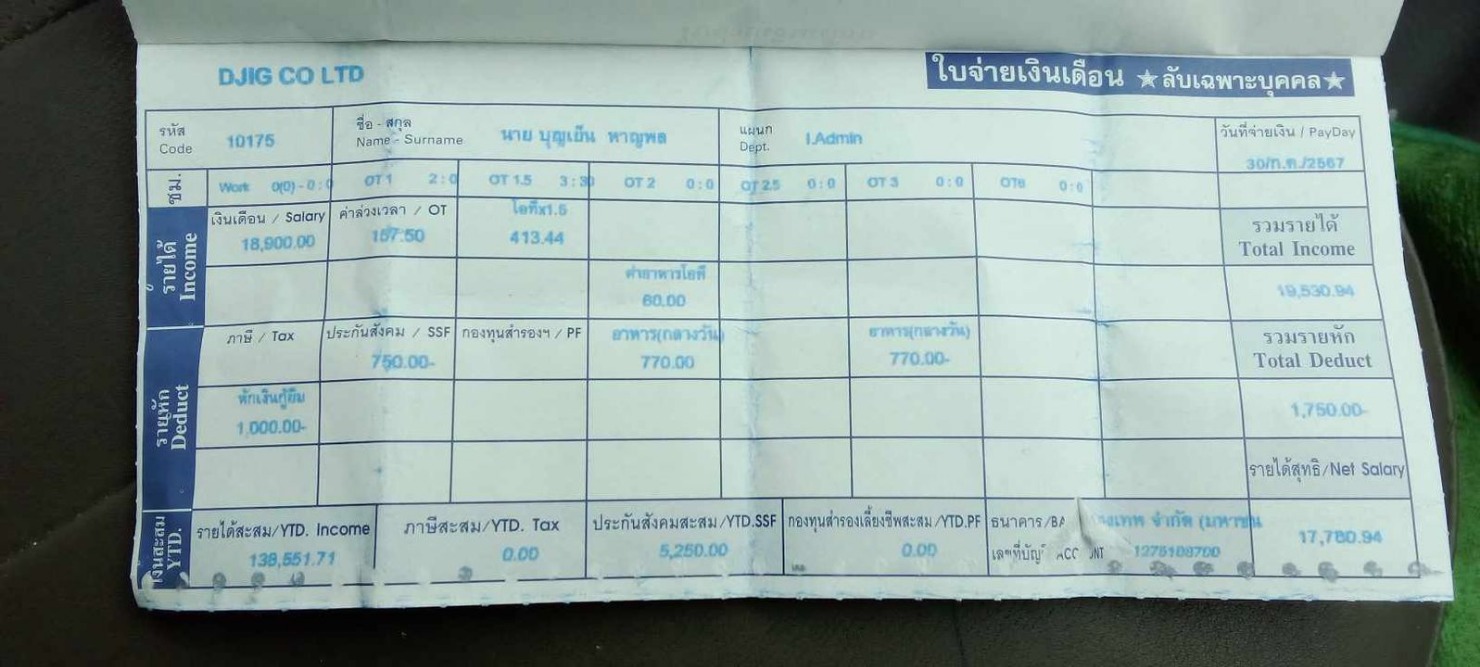 DJIG CO LTD
ใบจ่ายเงินเดือน ★ลับเฉพาะบุคคล★
รหัส Code 10175 ชื่อ - สกุล Name - Surname นาย บุญเย็น หาญพล แผนก Dept. I.Admin วันที่จ่ายเงิน / PayDay
30/ก.ค./2567
ชม. Work 0(0) - 0:0 OT 1 2:0 OT 1.5 3:30 OT 2 0:0 OT 2.5 0:0 OT 3 0:0 OT6 0:0
รายได้ Income
เงินเดือน / Salary ค่าล่วงเวลา / OT โอทีx1.5 รวมรายได้ Total Income
18,900.00 157.50 413.44
ค่าอาหารโอที
60.00 19,530.94
รายหัก Deduct
ภาษี / Tax ประกันสังคม / SSF กองทุนสำรองฯ / PF อาหาร(กลางวัน) อาหาร(กลางวัน) รวมรายหัก Total Deduct
750.00- 770.00 770.00-
หักเงินกู้ยืม
1,000.00- 1,750.00-
รายได้สุทธิ/Net Salary
เงินสะสม YTD.
รายได้สะสม/YTD. Income ภาษีสะสม/YTD. Tax ประกันสังคมสะสม/YTD.SSF กองทุนสำรองเลี้ยงชีพสะสม/YTD.PF ธนาคาร/BA จำกัด (มหาชน
138,551.71 0.00 5,250.00 0.00 17,780.94